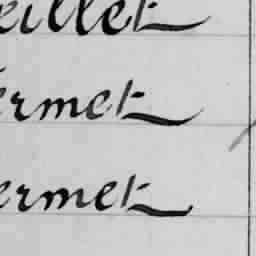 eillet
ermet
ermet